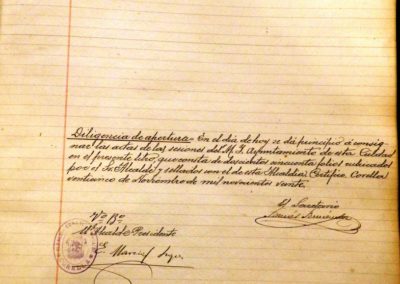 Diligencia de apertura = En el dia de hoy se dá principio á consig-
nar las actas de las sesiones del M. I. Ayuntamiento de esta Ciudad
en el presente libro, que consta de doscientos cincuenta folios rubricados
por el Sr. Alcalde y sellados con el de esta Alcaldia. Certifico. Corella
veintiuno de Noviembre de mil novecientos veinte.
El Secretario
Vº Bº
El Alcalde Presidente